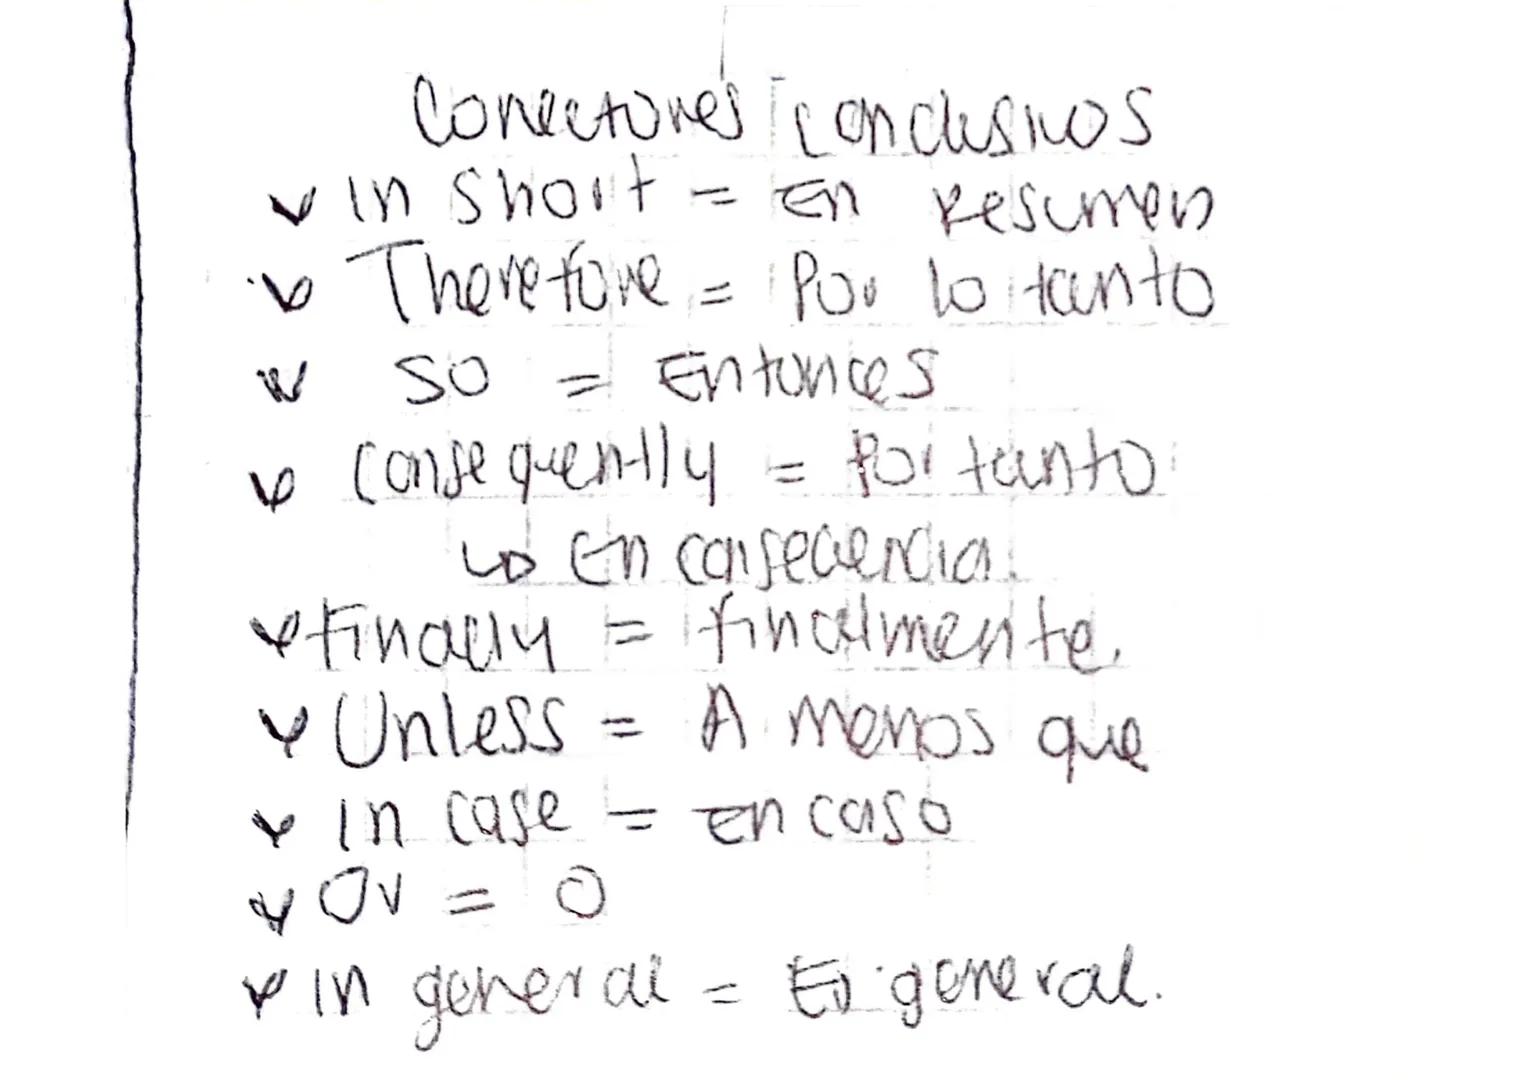 Conectores conclusivos
✓ in short = En resumen
✓ Therefore = Por lo tanto
✓ so = Entonces
✓ consequently = Por tanto
↳ En consecuencia.
✓ Finally = finalmente.
✓ Unless = A menos que
✓ in case = En caso
✓ Or = O
✓ in general = En general.